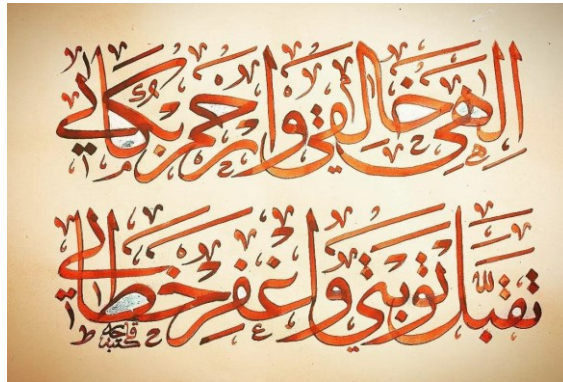 الهي خالقي وارحم بكائي
تقبل توبتي واغفر خطائي